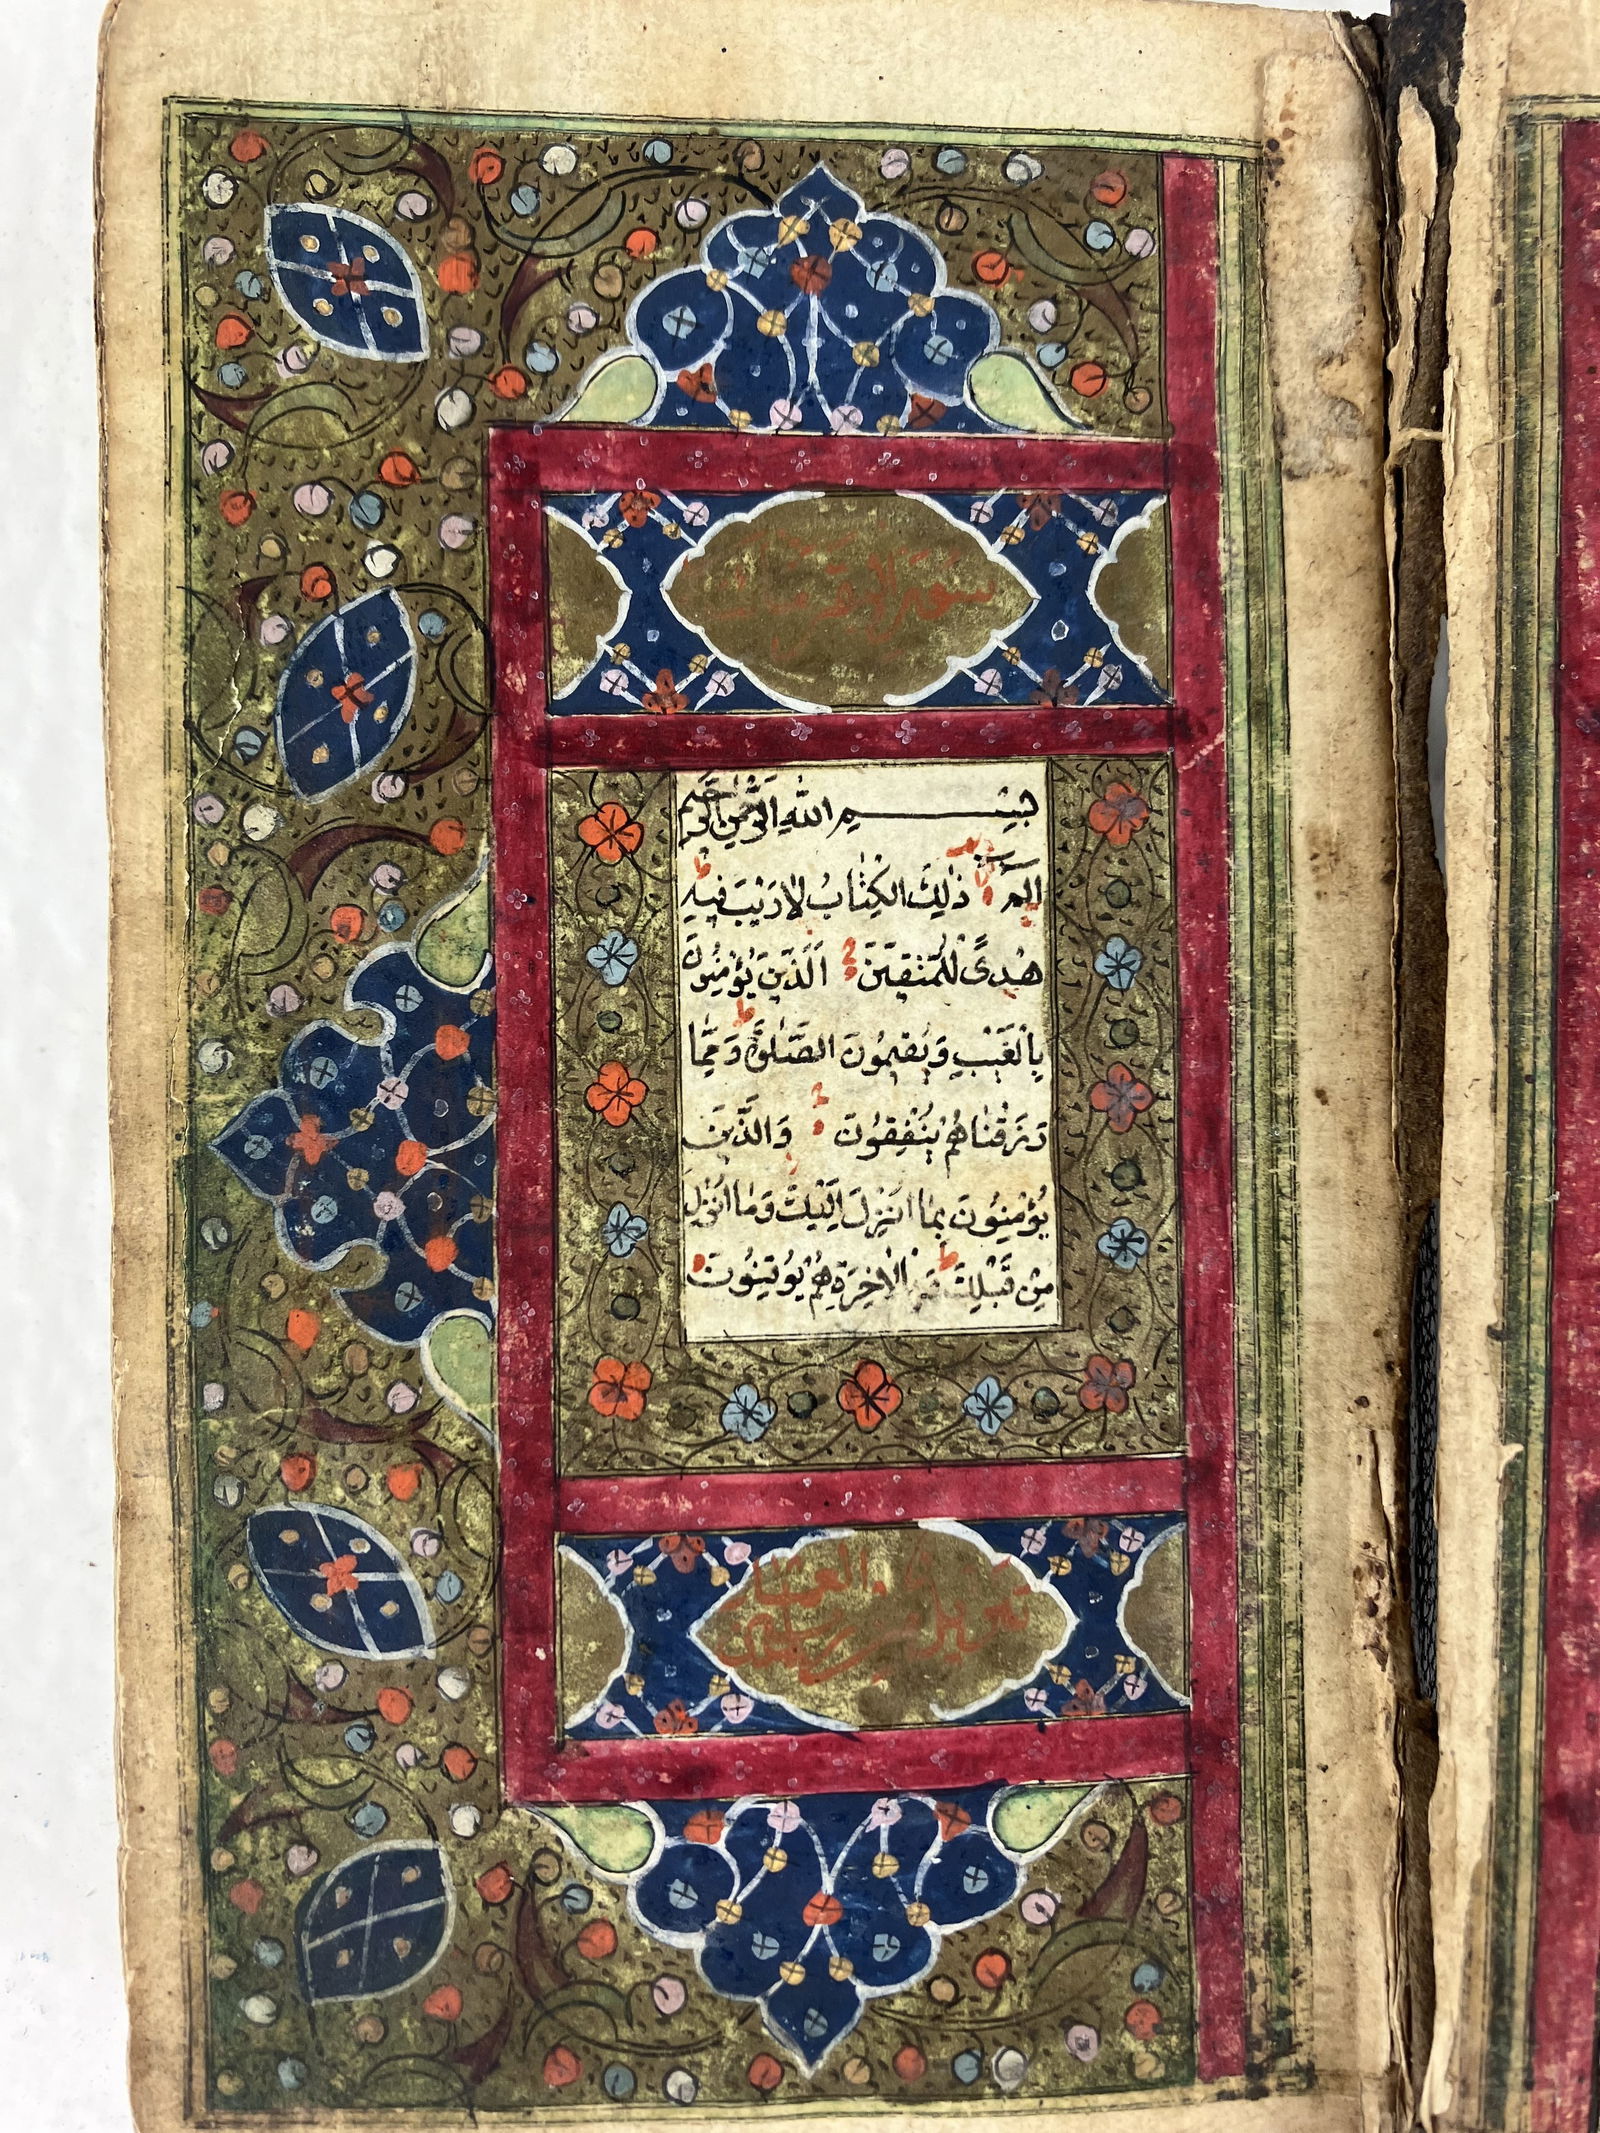 سورة البقرة
بِسْمِ اللهِ الرَّحْمٰنِ الرَّحِيمِ
الٓمٓ ذٰلِكَ الْكِتٰابُ لاٰ رَيْبَ فِيهِ
هُدىً لِلْمُتَّقِينَ اَلَّذِينَ يُؤْمِنُونَ
بِالْغَيْبِ وَيُقِيمُونَ الصَّلٰوةَ وَمِمَّا
رَزَقْنٰاهُمْ يُنْفِقُونَ وَالَّذِينَ
يُؤْمِنُونَ بِمٰا اُنْزِلَ اِلَيْكَ وَمٰا اُنْزِلَ
مِنْ قَبْلِكَ وَبِالْاٰخِرَةِ هُمْ يُوقِنُونَ
تنزيل من رب العالمين